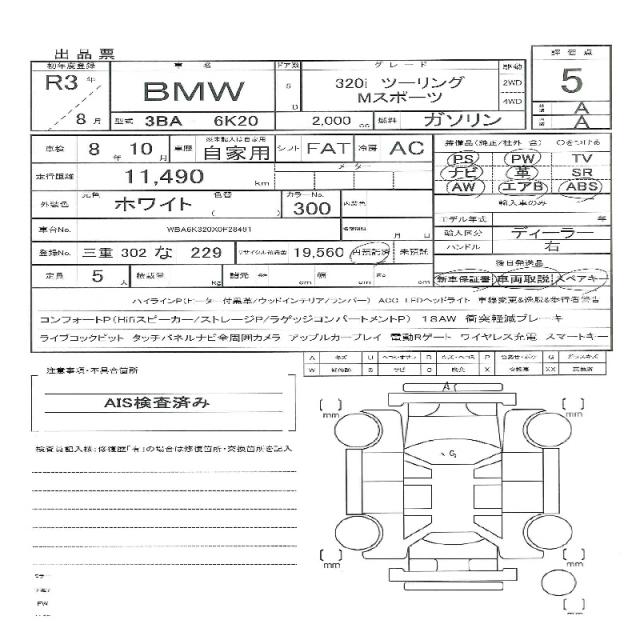 出品票
初年度登録 車名 ドア数 グレード 駆動 評価点
R3年 8月 BMW 5 D 320i ツーリング Mスポーツ 2WD 4WD 5
型式 3BA 6K20 2,000 cc 燃料 ガソリン A A
車検 8年 10月 車歴 自家用 シフト FAT 冷房 AC
装備品(純正/社外 含) ○をつける
走行距離 11,490 km メーター
PS PW TV
ナビ 革 SR
AW エアB ABS
外装色 元色 ホワイト 色替 ( ) カラーNo. 300 内装色
輸入車のみ
モデル年式 年
車台No. 月 日
輸入区分 ディーラー
ハンドル 右
登録No. 三重 302 な 229 リサイクル預託金 19,560 円預託済 未預託
定員 5人 積載量 kg 諸元 長 cm 幅 cm 高 cm
後日発送品
新車保証書 車両取説 スペアキー
ハイラインP(ヒーター付黒革/ウッドインテリア/ランバー) ACC LEDヘッドライト 車線変更&逸脱&歩行者警告
コンフォートP(Hifiスピーカー/ストレージP/ラゲッジコンパートメントP) 18AW 衝突軽減ブレーキ
ライブコックピット タッチパネルナビ全周囲カメラ アップルカープレイ 電動Rゲート ワイヤレス充電 スマートキー
注意事項・不具合箇所
AIS検査済み
検査員記入欄:修復歴「有」の場合は修復箇所・交換箇所を記入
A
G
mm mm
mm mm
mm